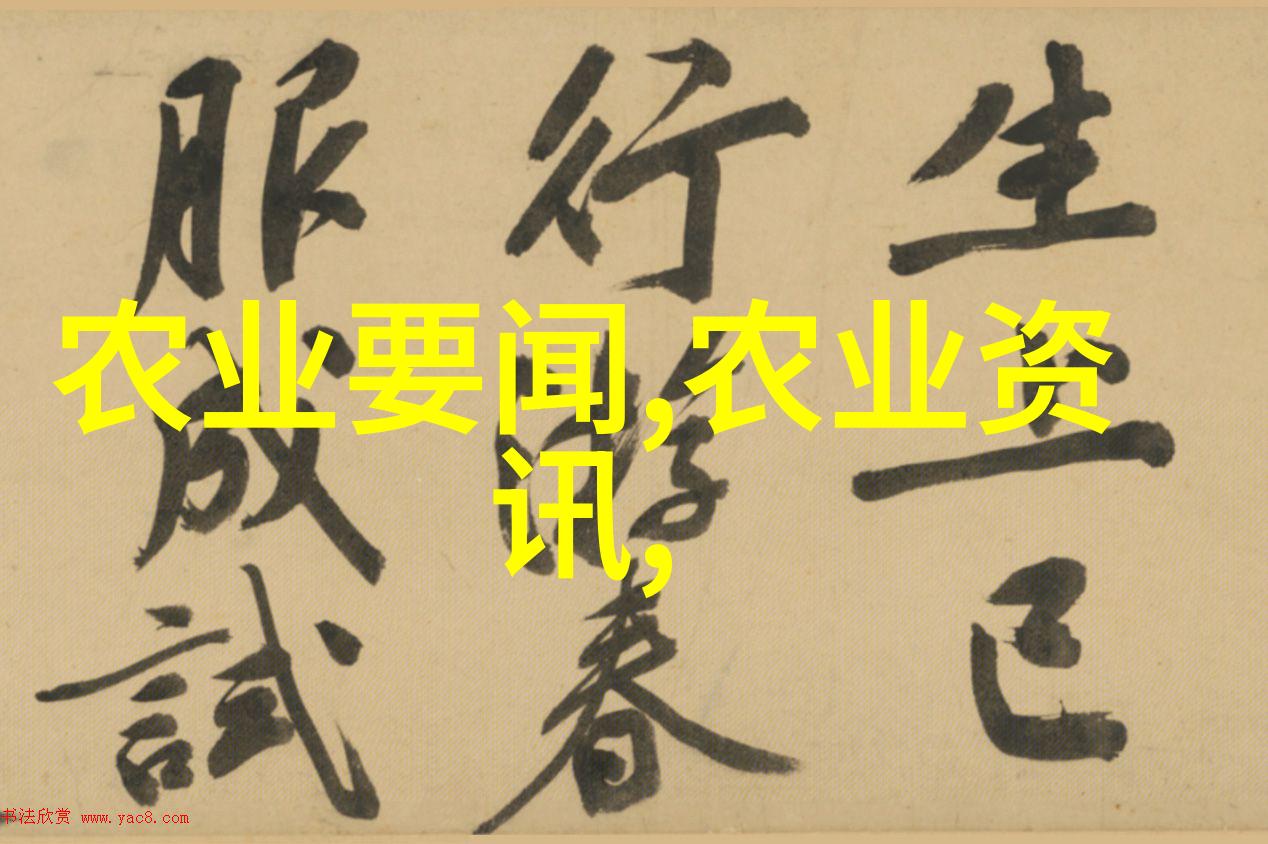 生上巳
行游春
服成試
农业要闻,农业资
讯,
书法欣赏 www.yac8.com